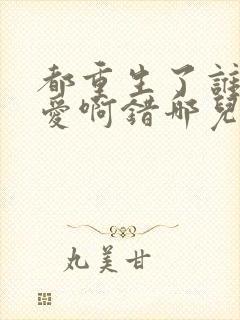 都重生了誰
愛啊錯那兒
丸美甘